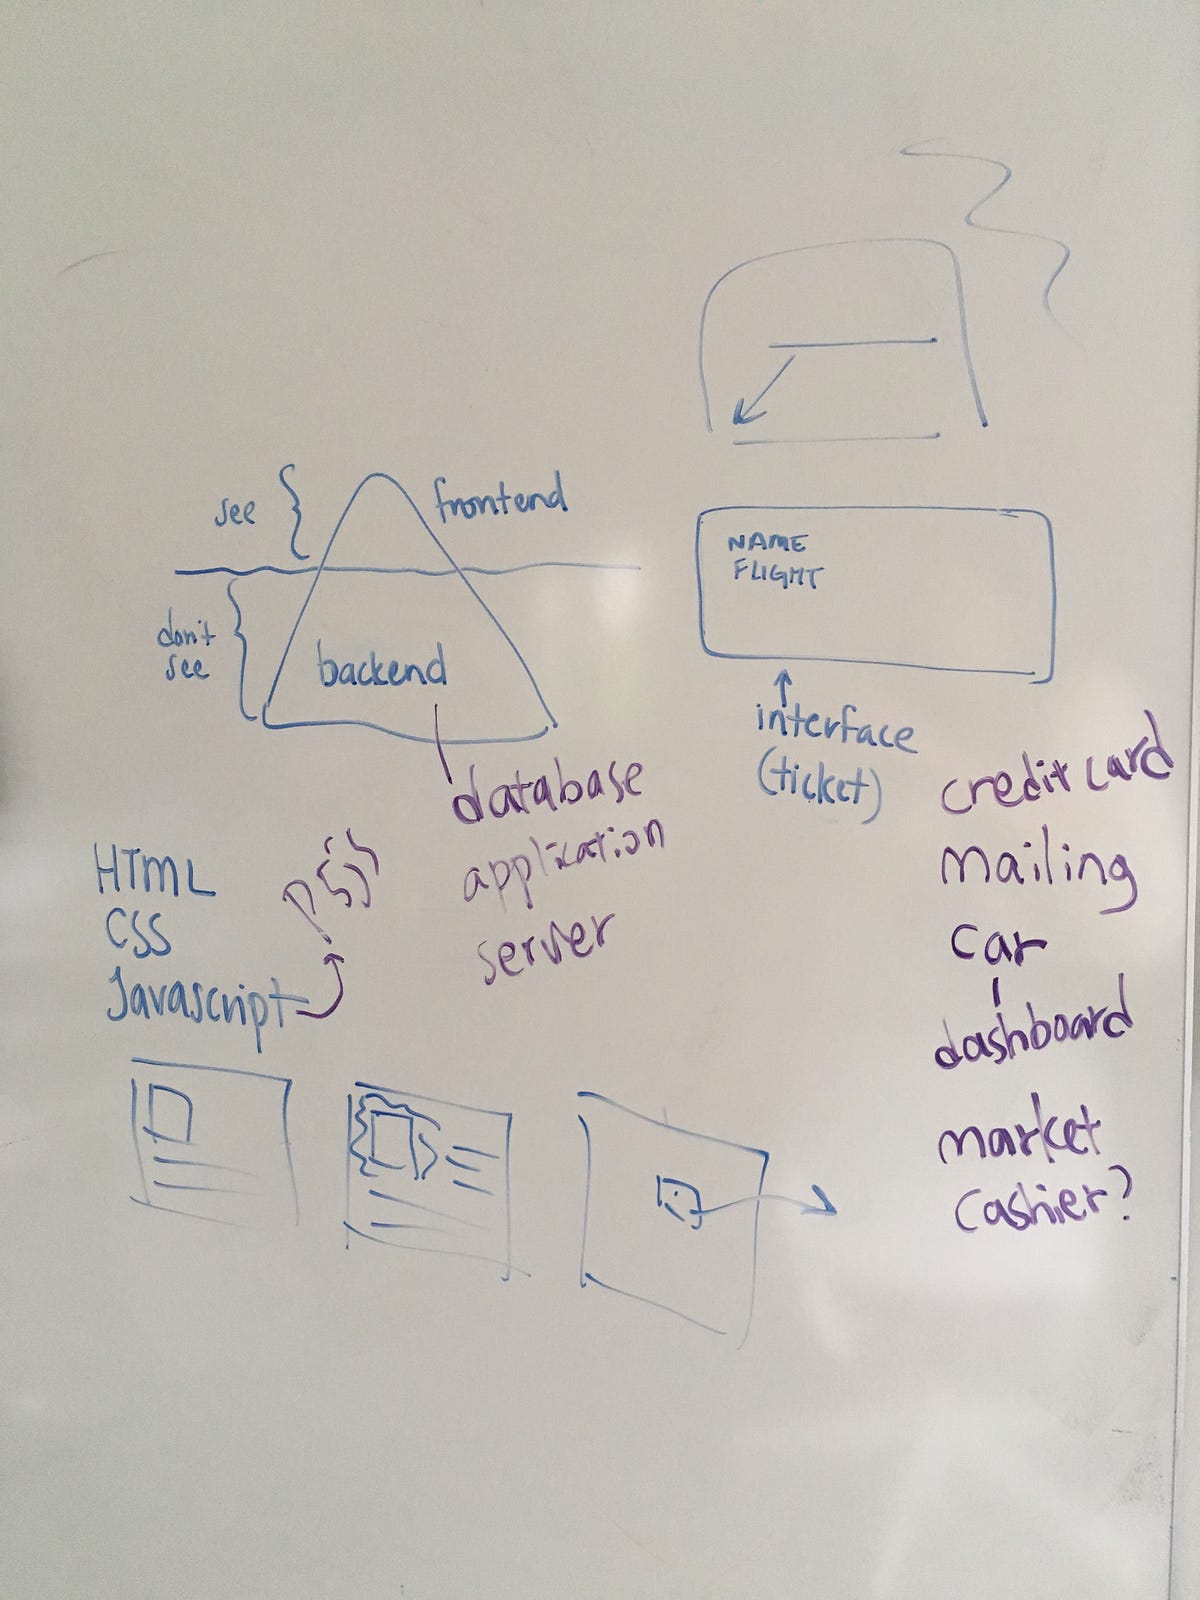 see
frontend
don't
see
backend
database
application
server
HTML
CSS
Javascript
p5js
NAME
FLIGHT
interface
(ticket)
credit card
mailing
car
dashboard
market
cashier?